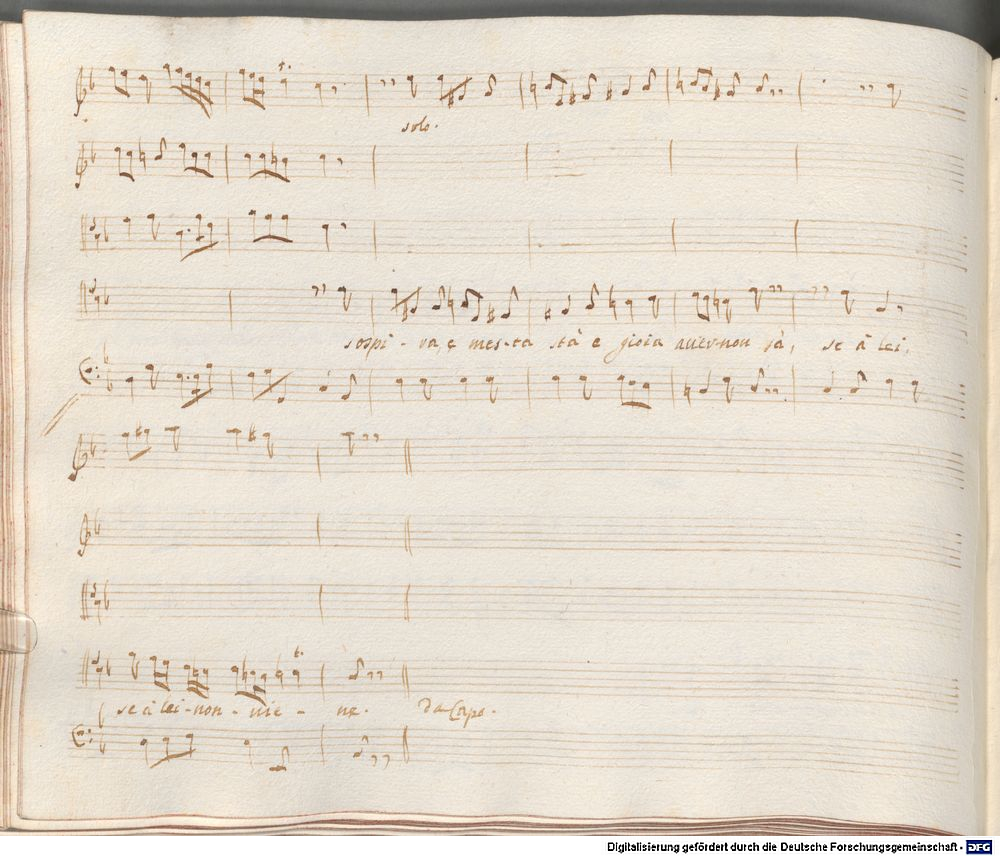 solo.
sospi - ra, e mes-ta stà e gioia auer non sà, se à lei,
se à lei - non - uie - ne. Da Capo.
Digitalisierung gefördert durch die Deutsche Forschungsgemeinschaft - DFG